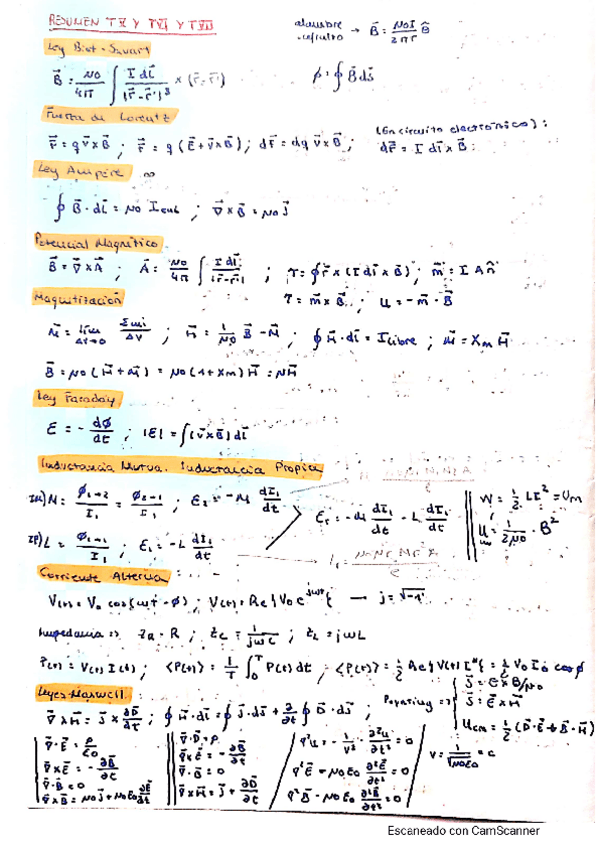 RESUMEN TV Y TVI Y TVII
alambre infinito → B⃗ = μ0 I / 2πr θ̂
Ley Biot-Savart
B⃗ = μ0/4π ∫ I dl⃗ / |r⃗-r⃗'|³ × (r⃗-r⃗')
φ = ∮ B⃗ ds⃗
Fuerza de Lorentz
(En circuito electrónico):
F⃗ = q v⃗ × B⃗ ; F⃗ = q (E⃗ + v⃗ × B⃗) ; dF⃗ = dq v⃗ × B⃗ ; dF⃗ = I dl⃗ × B⃗
Ley Ampère
∮ B⃗ · dl⃗ = μ0 I ; ∇⃗ × B⃗ = μ0 J⃗
Potencial Magnético
B⃗ = ∇⃗ × A⃗ ; A⃗ = μ0/4π ∫ I dl⃗ / |r⃗-r⃗'| ; τ = ∮ r⃗ × (I dl⃗ × B⃗) ; m⃗ = I A n̂
τ = m⃗ × B⃗ ; U = -m⃗ · B⃗
Magnetización
M⃗ = lim ΔV→0 Σmi / ΔV ; H⃗ = 1/μ0 B⃗ - M⃗ ; ∮ H⃗ · dl⃗ = I libre ; M⃗ = Xm H⃗
B⃗ = μ0 (H⃗ + M⃗) = μ0 (1 + Xm) H⃗ = μH⃗
Ley Faraday
ε = - dφ/dt ; |ε| = ∫ (v⃗ × B⃗) dl⃗
Inductancia Mutua. Inductancia Propia
IM) M = φ1→2 / I1 = φ2→1 / I1 ; ε2 = -M dI1/dt
εT = -M dI1/dt - L dI1/dt
W = 1/2 L I² = Um
U = 1/2μ0 · B²
IP) L = φ1→1 / I1 ; ε1 = -L dI1/dt
Corriente Alterna
V(t) = V0 cos(ωt - φ) ; V(t) = Re{V0 e^jωt} → j = √-1
Impedancia => ZR = R ; ZC = 1/jωC ; ZL = jωL
P(t) = V(t) I(t) ; <P(t)> = 1/T ∫₀ᵀ P(t) dt ; <P(t)> = 1/2 Re{V(t) I*} = 1/2 V0 I0 cosφ
Leyes Maxwell
∇⃗ × H⃗ = J⃗ × ∂D⃗/∂t ; ∮ H⃗ · dl⃗ = ∮ J⃗ · ds⃗ + ∂/∂t ∮ D⃗ · ds⃗ ;
Poynting =>
S⃗ = E⃗ × B⃗/μ0
S⃗ = E⃗ × H⃗
Uem = 1/2 (D⃗ · E⃗ + B⃗ · H⃗)
∇⃗ · E⃗ = ρ/ε0
∇⃗ × E⃗ = - ∂B⃗/∂t
∇⃗ · B⃗ = 0
∇⃗ × B⃗ = μ0 J⃗ + μ0 ε0 ∂E⃗/∂t
∇⃗ · D⃗ = ρ
∇⃗ × E⃗ = - ∂B⃗/∂t
∇⃗ · B⃗ = 0
∇⃗ × H⃗ = J⃗ + ∂D⃗/∂t
∇²u - 1/v² ∂²u/∂t² = 0
∇²E⃗ - μ0 ε0 ∂²E⃗/∂t² = 0
∇²B⃗ - μ0 ε0 ∂²B⃗/∂t² = 0
v = 1/√μ0ε0 = c
Escaneado con CamScanner